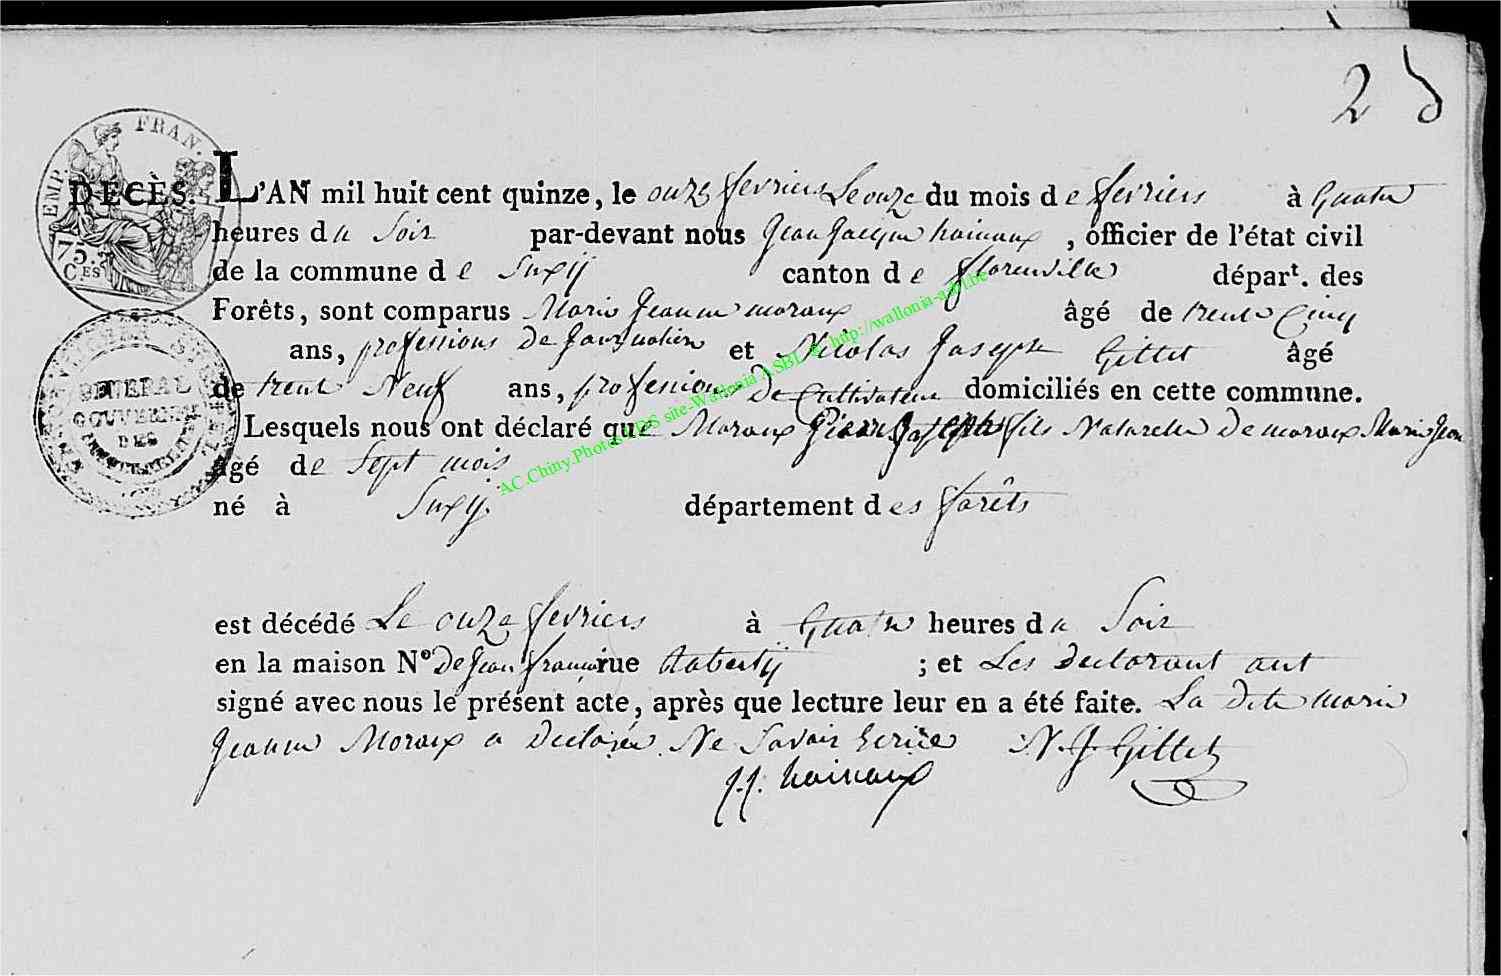 2 d
EMP. FRAN.
75. CES
DECÈS. L'AN mil huit cent quinze, le onze fevriers Le onze du mois de fevriers à quatre
heures du Soir par-devant nous Jean Jacque hainaux, officier de l'état civil
de la commune de Suxÿ canton de florenville départ. des
Forêts, sont comparus Marie Jeanne moraux âgé de trente Cinq
ans, professions De Journalien et Nicolas Joseph Gillet âgé
de trent Neuf ans, professions De Cultivateur domiciliés en cette commune.
Lesquels nous ont déclaré que Moraux Pierre Joseph fils Naturelle De moraux Marie Jean
âgé de Sept mois
né à Suxÿ département des forêts
est décédé Le onze fevriers à quatre heures du Soir
en la maison No De Jean francoi rue ; et Les declarant ont
signé avec nous le présent acte, après que lecture leur en a été faite. La Dite marie
Jeanne Moraux a Declarée Ne Savoir Ecrire N. J. Gillet
J. J. hainaux
GENERAL
GOUVERNEM
DES
AC.Chiny.Photos site-Wallonia ASBL http://wallonia-asbl.be